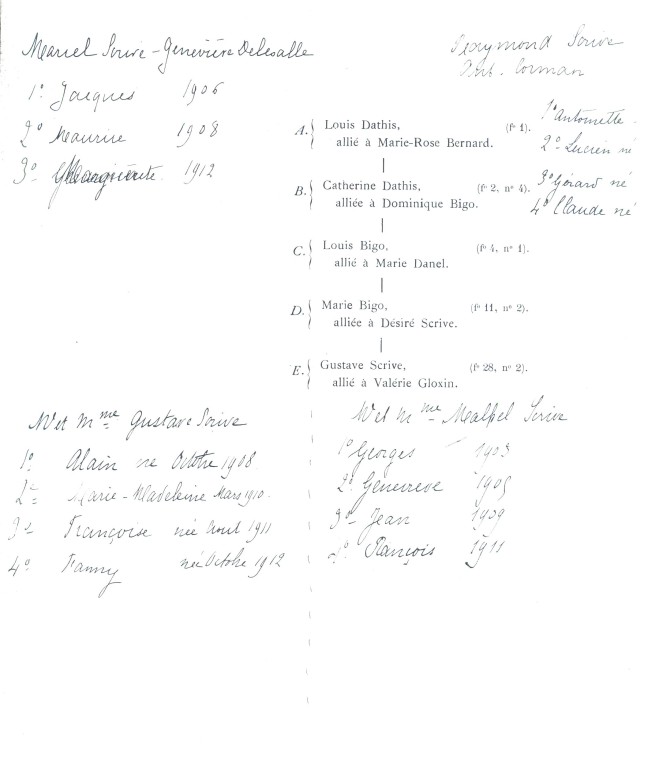 Marcel Scrive - Geneviève Delesalle
1º Jacques 1906
2º Maurice 1908
3º Marguerite 1912
Raymond Scrive
Ant. Corman
1º Antoinette
2º Lucien né
3º Gérard né
4º Claude né
A. { Louis Dathis, (fº 1).
allié à Marie-Rose Bernard.
B. { Catherine Dathis, (fº 2, nº 4).
alliée à Dominique Bigo.
C. { Louis Bigo, (fº 4, nº 1).
allié à Marie Danel.
D. { Marie Bigo, (fº 11, nº 2).
alliée à Désiré Scrive.
E. { Gustave Scrive, (fº 28, nº 2).
allié à Valérie Gloxin.
Mr et Mme Gustave Scrive
1º Alain né Octobre 1908.
2º Marie-Madeleine Mars 1910.
3º Françoise née Aout 1911
4º Fanny née Octobre 1912
Mr et Mme Malpel Scrive
1º Georges 1903
2º Geneviève 1905
3º Jean 1909
4º François 1911